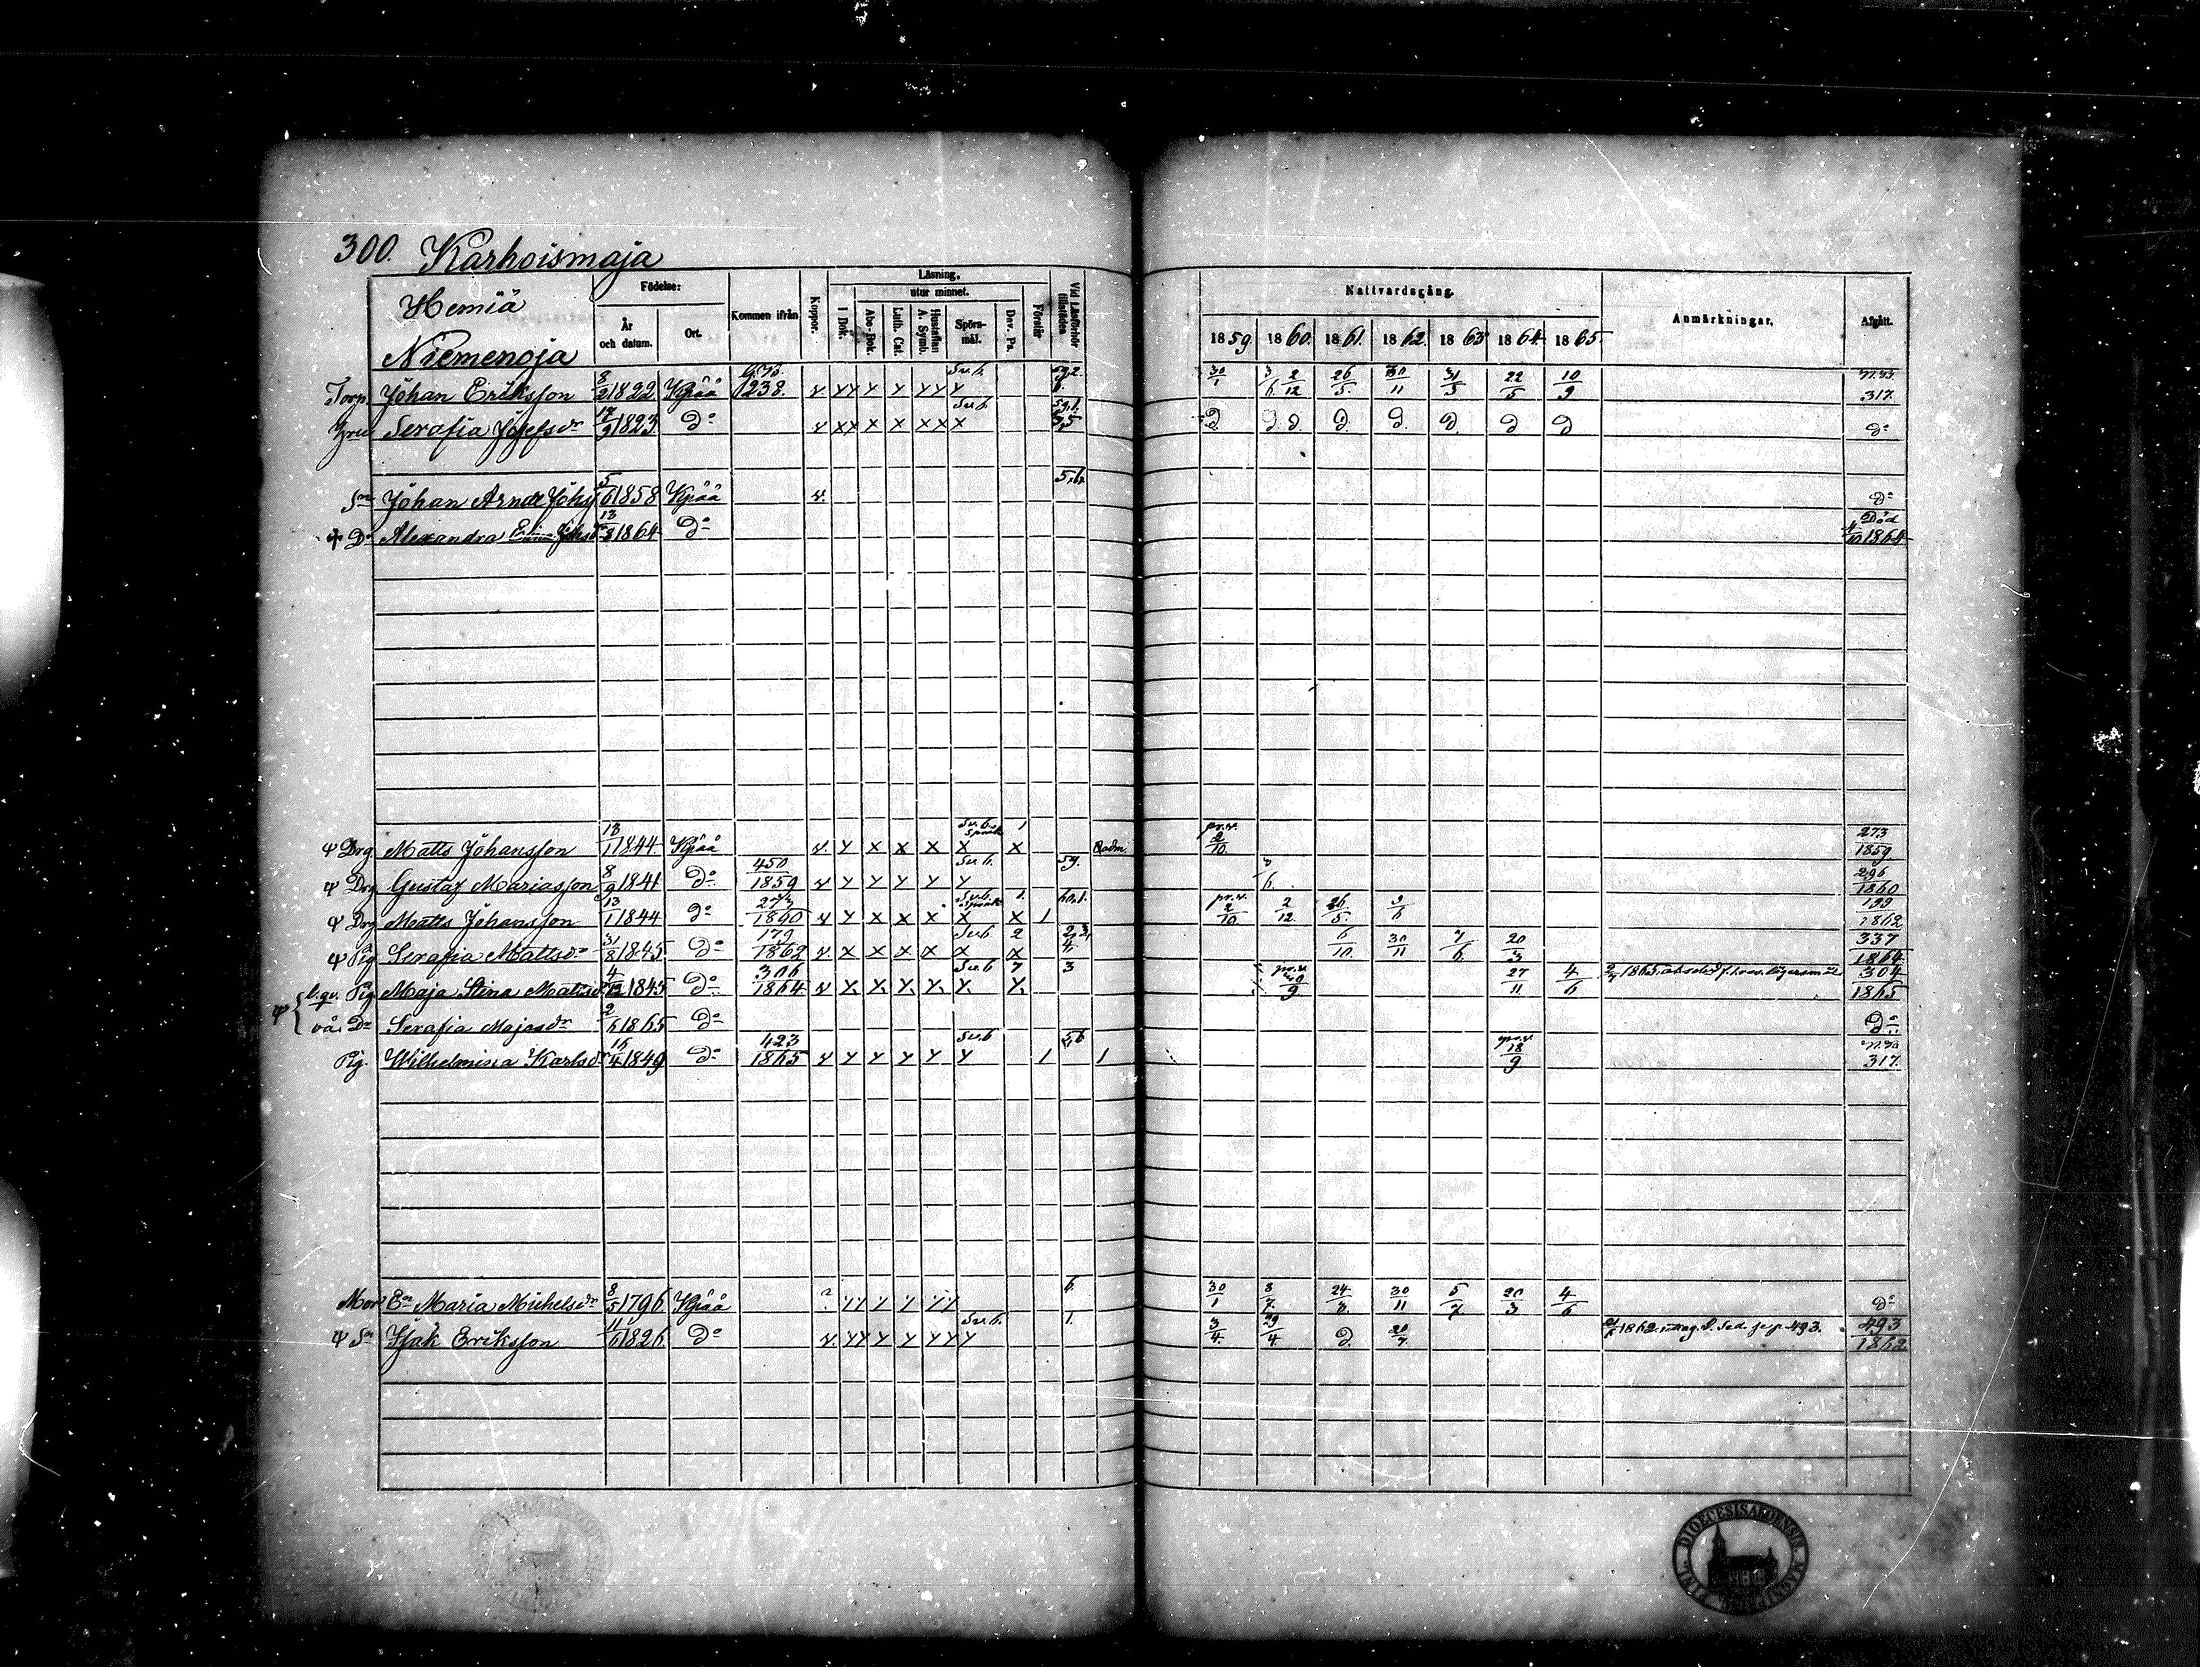 300. Karhoismaja
Hemiä
Niemenoja
Födelse:
År och datum.
Ort.
Kommen ifrån
Koppor.
Läsning,
utur minnet.
I Bok.
Abc-Bok.
Luth. Cat.
Hustaflan A. Symb.
Spörsmål.
Dav. Ps.
Förstår
Vid Läsförhör tillstädes
Nattvardsgång.
1859 1860. 1861. 1862. 1863 1864 1865.
Anmärkningar.
Afgått.
Torp. Johan Eriksson 8/2 1822 Kjåå 1238. Sv. b. 30/1 2/12 26/5. 30/11 31/5 22/5 10/9 317.
Hru Serafia Josefsdr 17/9 1823 Do Sv. b. D D D. D. D. D D D Do
Sn Johan Arndt Johs 5/6 1858 Kjåå 5,6. Do
+ Dr Alexandra Johsdr 13/3 1864 Do Död 4/10 1864
Ψ Drg Matts Johansson 13/1 1844 Kjåå Sv. b. 1 pr.v. 2/10. 273/1859
Ψ Drg Gustaf Mariasson 8/9 1841 Do 450/1859 Sv. b. 59. 296/1860
Ψ Drg Matts Johansson 13/1 1844 Do 273/1860 Sv. b. 1. 60,1. pr.v. 2/10 2/12. 26/5. 9/6 199/1862
Ψ Pig Serafia Mattsdr 31/8 1845 Do 179/1862 Sv. b 2 2,3,4. 6/10. 30/11 7/6 20/3 337/1864
Ψ Pig Maja Stina Mattsdr 4/12 1843 Do 306/1864 Sv. b 7 3 pr.v. 27/11 4/6 304/1865
Dr Serafia Majasdr 2/6 1865 Do Do
Pig. Wilhelmina Karlsdr 16/4 1849 Do 423/1865 Sv. b 5,6 1 1 pr.v. 18/9 317.
Mor En Maria Michelsdr 8/5 1796 Kjåå 6. 30/1 8/7. 24/3. 30/11 5/7 20/3 4/6 Do
Ψ Sn Isak Eriksson 11/6 1826 Do Sv. b. 1. 3/4. 29/4. D. 20/7. 493/1862
DIOECESIS ABOENSIS